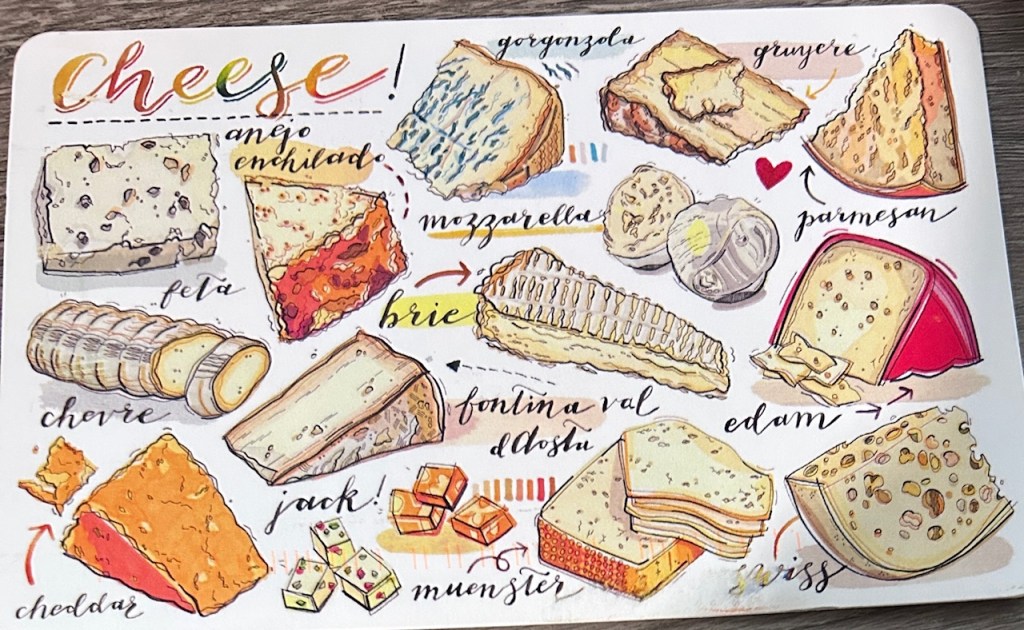 cheese!
gorgonzola
gruyere
anejo
enchilado
mozzarella
parmesan
feta
brie
chevre
fontina val
d'Aosta
edam
jack!
muenster
swiss
cheddar